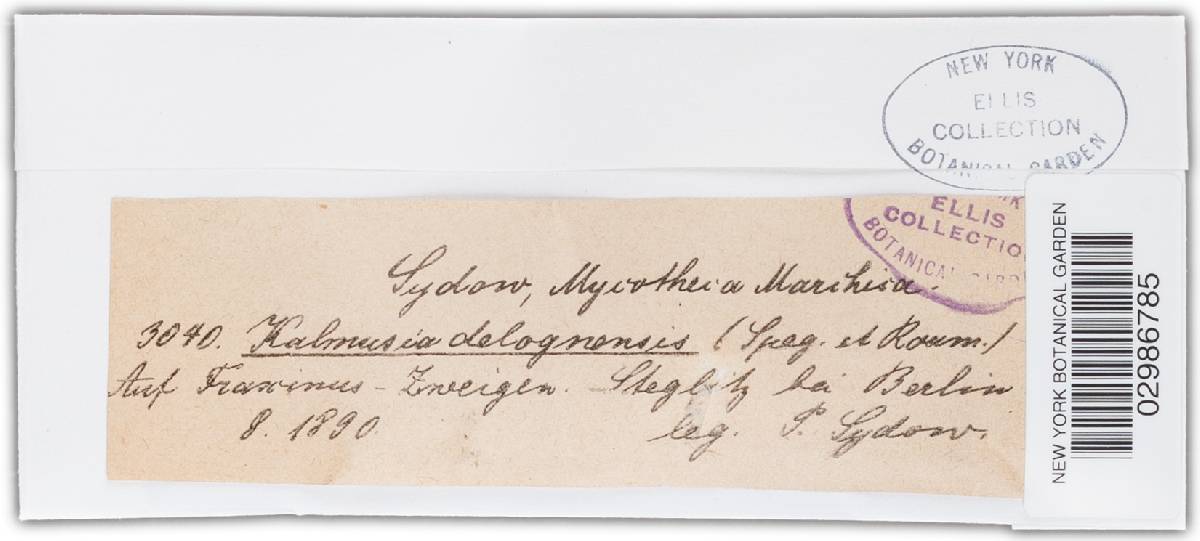 NEW YORK
ELLIS
COLLECTION
BOTANICAL GARDEN
ELLIS
COLLECTIO
BOTANICAL GARD
Sydow, Mycotheca Marchica.
3040. Kalmusia delognensis (Speg. et Roum.)
Auf Fraxinus - Zweigen. Steglitz bei Berlin
8. 1890. leg. P. Sydow.
NEW YORK BOTANICAL GARDEN
02986785